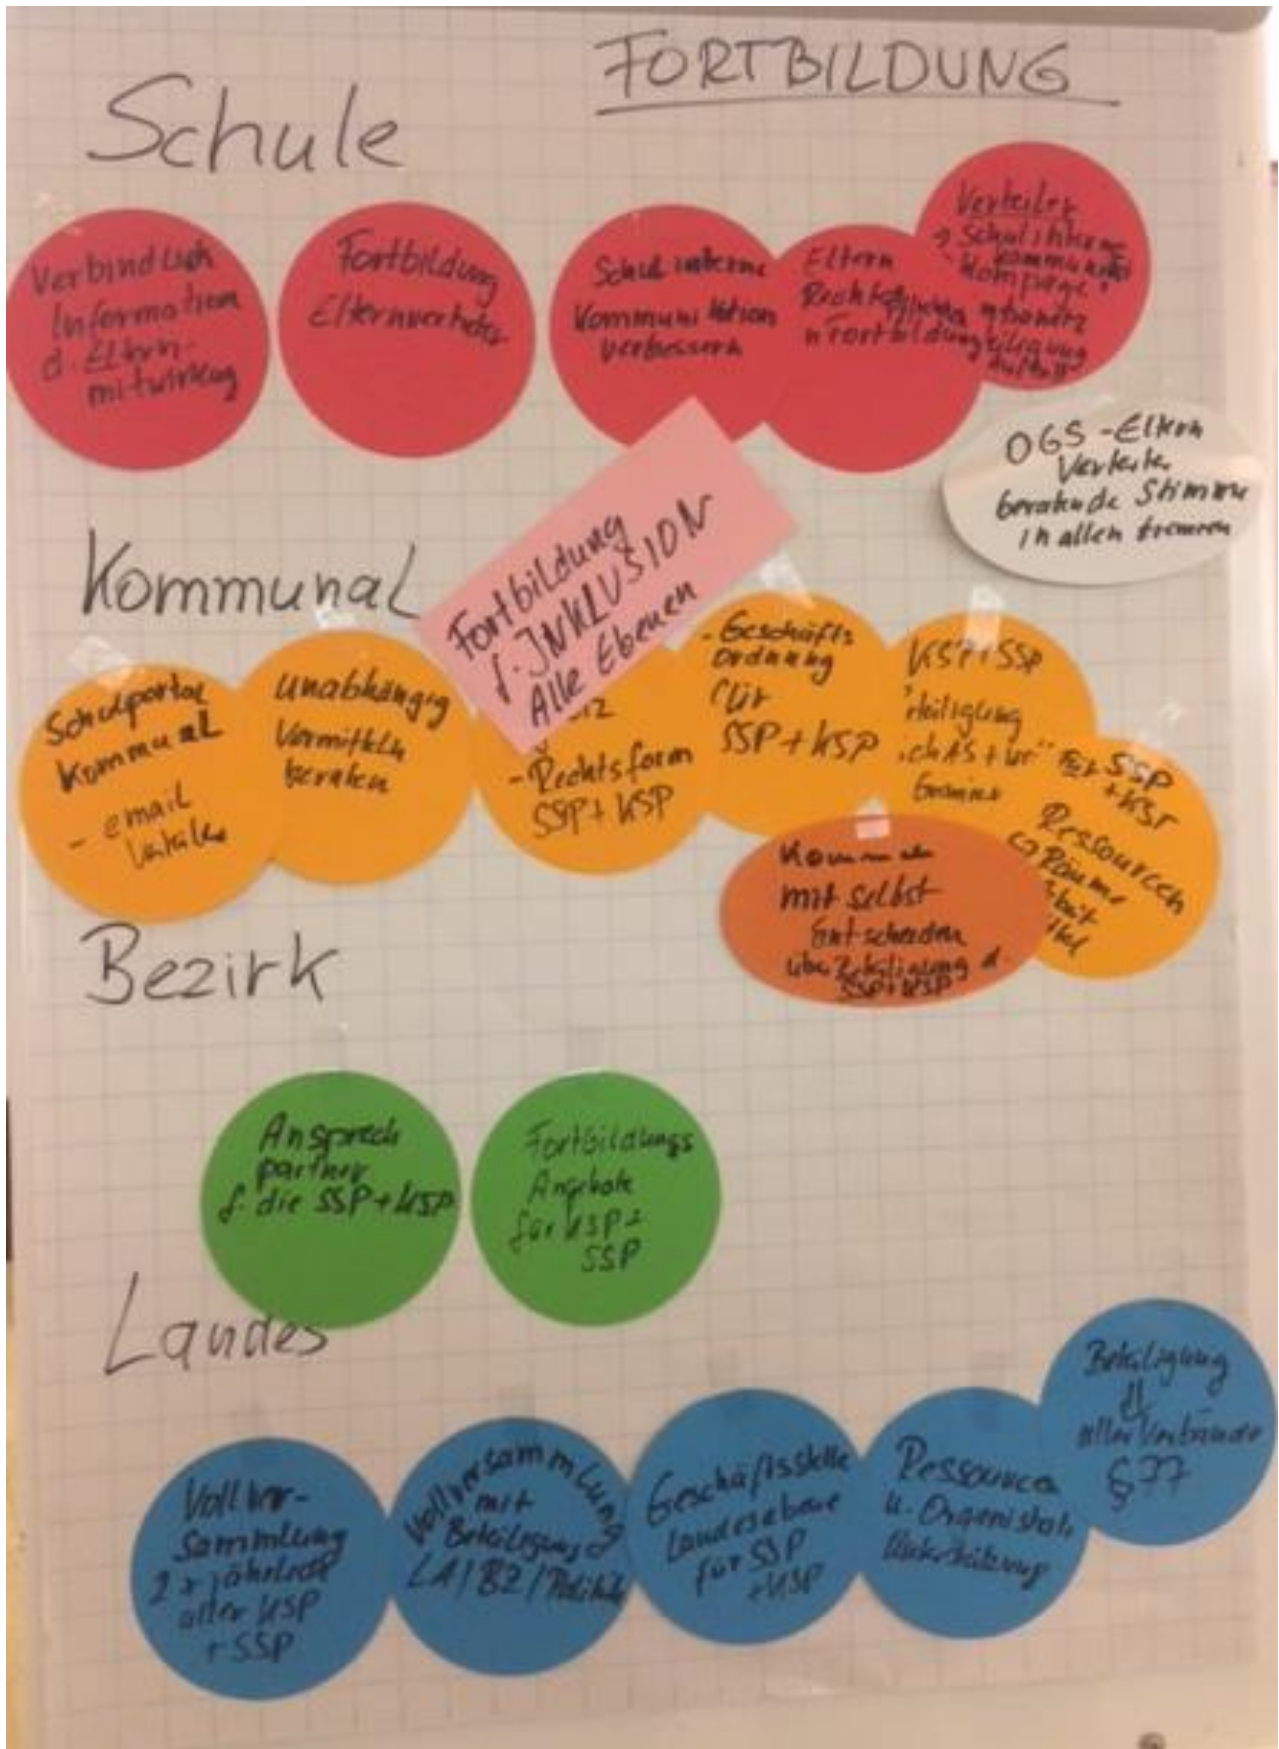 FORTBILDUNG
Schule
Verbindlich
Information
d. Eltern-
mitwirkug
Fortbildung
Elternvertreter
Schulinterne
Kommunikation
verbessern
Eltern
n Fortbildung
Verteiler
Schulinterne
OGS - Eltern
beratende Stimme
in allen
Kommunal
Fortbildung
f. INKLUSION
Alle Ebenen
Schulportal
Kommunal
- email
unabhängig
Vermitteln
beraten
- Rechtsform
SSP + KSP
- Geschäfts
Ordnung
für
SSP + KSP
KSP + SSP
SSP
Ressourcen
Räume
mit selbst
Entscheiden
SSP + KSP
Bezirk
Ansprech
partner
f. die SSP + KSP
Fortbildungs
Angebote
für KSP
SSP
Landes
Vollver-
sammlung
2 x jährlich
aller KSP
+ SSP
Vollversammlung
mit
Beteiligung
LA / BZ / Politik
Geschäftsstelle
Landesebene
für SSP
+ KSP
Ressourcen
u. Organisator.
Unterstützung
Beteiligung
⇓
aller Verbände
§ 77